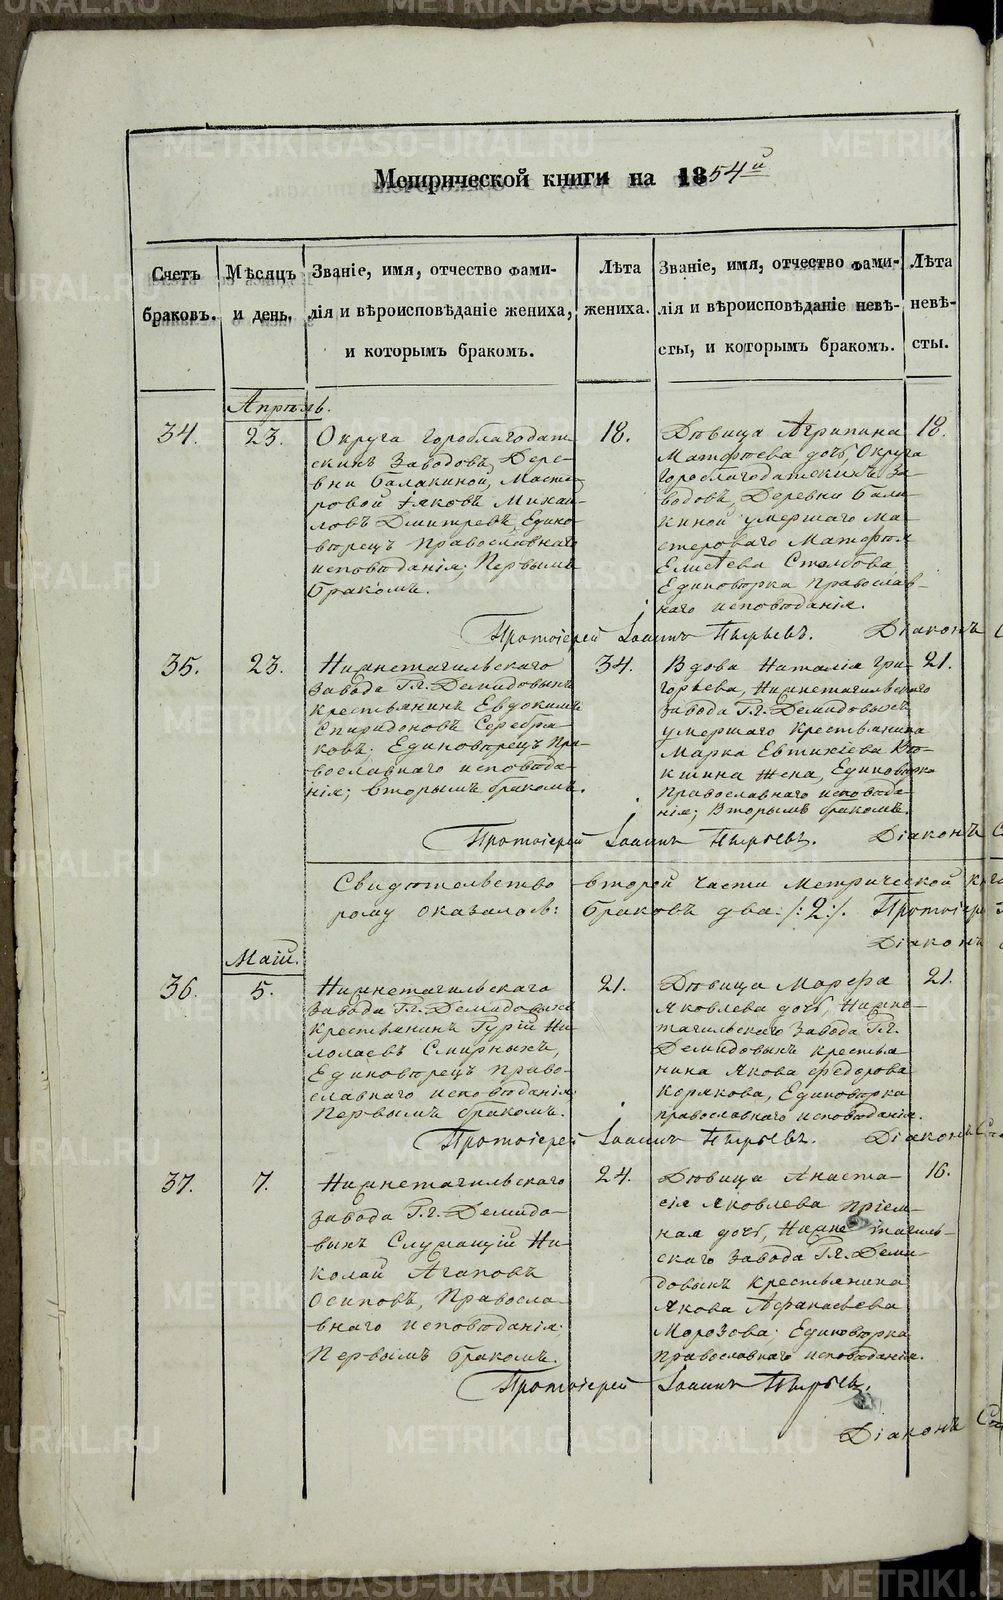 Метрической книги на 1854й
Счетъ браковъ.
Мѣсяцъ и день.
Званіе, имя, отчество фами-
лія и вѣроисповѣданіе жениха,
и которымъ бракомъ.
Лѣта
жениха.
Званіе, имя, отчество фами-
лія и вѣроисповѣданіе невѣ-
сты, и которымъ бракомъ.
Лѣта
невѣ-
сты.
Апрѣль.
34.
23.
Округа Гороблагодат
скихъ Заводовъ, Дере-
вни Балакиной, Масте
ровой Іаковъ Михаи
ловъ Дмитревъ, Едино-
вѣрецъ Православнаго
исповѣданія; Первымъ
бракомъ.
18.
Дѣвица Агрипина
Матфѣева дочь, Округа
Гороблагодатскихъ За-
водовъ, Деревни Бала
киной умершаго Ма-
стероваго Матфѣя
Елисѣева Столбова,
Единовѣрка Православ-
наго исповѣданія.
18.
Протоіерей Іоаннъ Пырьевъ. Діаконъ
35.
23.
Нижнетагильскаго
завода Гг. Демидовыхъ
крестьянинъ Евдокимъ
Спиридоновъ Серебря-
ковъ; Единовѣрецъ Пра-
вославнаго исповѣда-
нія; вторымъ бракомъ.
34.
Вдова Наталія Гри-
горьева, Нижнетагильскаго
завода Гг. Демидовыхъ
умершаго Крестьянина
Марка Евтихіева
жена, Единовѣрка
Православнаго исповѣда-
нія; Вторымъ бракомъ.
21.
Протоіерей Іоаннъ Пырьевъ. Діаконъ
Свидѣтельство второй части Метрической
рому оказалось: браковъ два: /:2:/. Протоіер
Діаконъ
Маій.
36.
5.
Нижнетагильскаго
Завода Гг. Демидовыхъ
Крестьянинъ Гурій Ни-
колаевъ Смирныхъ,
Единовѣрецъ Право-
славнаго исповѣданія;
Первымъ бракомъ.
21.
Дѣвица Марфа
Яковлева дочь, Нижне-
тагильскаго Завода Гг.
Демидовыхъ крестья-
нина Якова Федорова
Корякова, Единовѣрка
православнаго исповѣданія.
21.
Протоіерей Іоаннъ Пырьевъ. Діаконъ
37.
7.
Нижнетагильскаго
завода Гг. Демидо-
выхъ Служащій Ни-
колай Агаповъ
Осиповъ, Правосла-
внаго исповѣданія;
Первымъ бракомъ.
24.
Дѣвица Анаста-
сія Яковлева пріем-
ная дочь, Нижне тагиль-
скаго Завода Гг. Деми-
довыхъ крестьянина
Якова Афанасьева
Морозова; Единовѣрка
православнаго исповѣданія.
16.
Протоіерей Іоаннъ Пырьевъ.
Діаконъ
METRIKI.GASO-URAL.RU